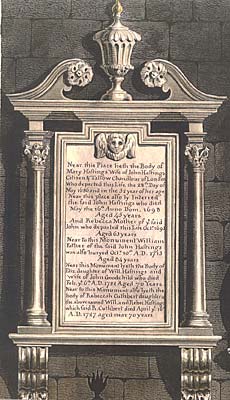 Near this Place lieth the Body of
Mary Hastings Wife of John Hastings
Citizen & Tallow Chandlour of London
Who departed this Life the 28th Day of
May 1680 and in the 31 year of her age
Near this place also is Interred
the said John Hastings who died
May the 16th Anno Dom. 1698
Aged 45 years
And Rebecca Mother of the said
John who departed this Life Octr 1693
Aged 63 years
Near to this Monument William
Father of the said John Hastings
was also buryed Octr 20th A.D. 1713
Aged 84 years
Near this Monument lyeth the Body of
Eliz. daughter of Will. Hastings and
wife of John Goodchild who died
Feb. ye 6th A.D. 1721 Aged 70 Years
Near to this Monument also lyeth the
body of Rebeccah Cuthbert daughter of
the above named Will. and Rebec. Hastings
which said R. Cuthbert died April ye
A.D. 1727 aged near 70 years